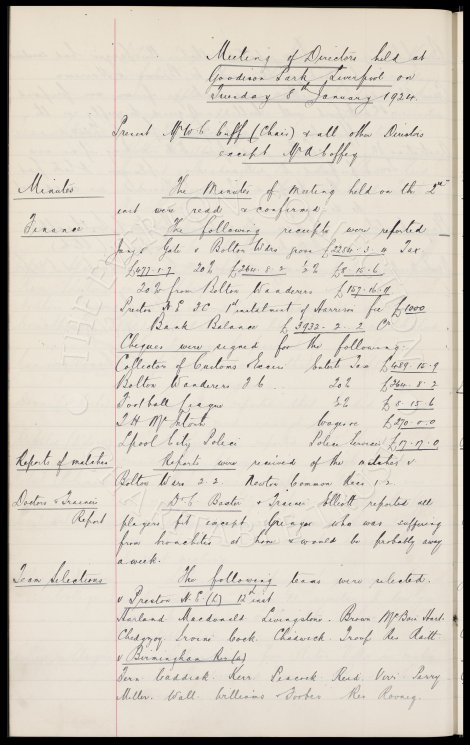 Meeting of Directors held at
Goodison Park, Liverpool on
Tuesday 8th January 1924.
Present Mr W C Cuff (Chair) & all other Directors
except Mr A Coffey
Minutes
The Minutes of Meeting held on the 2nd
inst were read & confirmed.
Finance
The following receipts were reported
Jany 5 Gate v Bolton Wdrs gross £2286-3-4 Tax
£477-1-7 20% £264-8-2 ½% £8-15-6
20% from Bolton Wanderers £157-16-9
Preston N E FC 1st instalment of Harrison fee £1000
Bank Balance £3932-2-2 Cr
Cheques were signed for the following
Collector of Customs & Excise Entert Tax £489-15-9
Bolton Wanderers F C 20% £264-8-2
Football League £8-15-6
T H McIntosh Wages &c £270-0-0
Lpool City Police Police Services £17-17-0
Reports of matches
Reports were received of the matches v
Bolton Wdrs 2-2 Newton Common Recs 1-2
Doctors & Trainers
Report
Dr C Baxter & Trainer Elliott reported all
players fit except Grenyer who was suffering
from bronchitis at home & would be probably away
a week.
Team Selections
The following teams were selected.
v Preston N.E. (L) 12th inst
Harland Macdonald Livingstone. Brown McBain Hart.
Chedgzoy Irvine Cock. Chadwick Troup Res Raitt
v Birmingham Res (a)
Fern Caddick. Kerr Peacock Reid. Virr Parry
Miller. Wall Williams Forbes Res Rooney